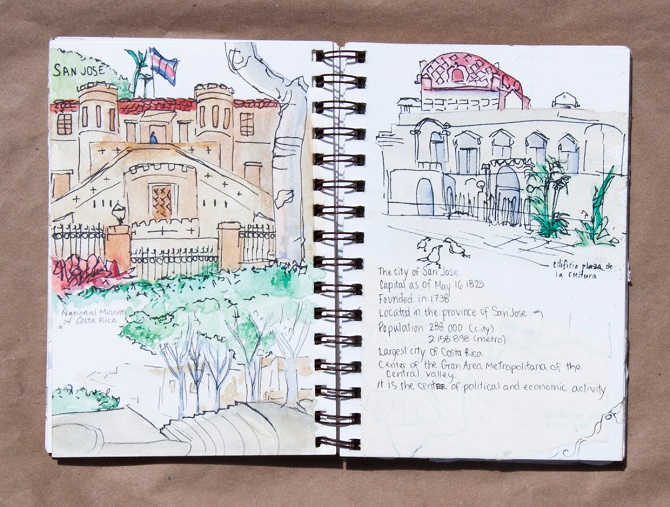 SAN JOSE
National Museum
of Costa Rica
Edificio plaza de
la cultura
The city of San Jose
Capital as of May 16 1823
Founded in 1738
Located in the province of San Jose
Population 288 000 (city)
2 158 898 (metro)
Largest city of Costa Rica
Center of the Gran Area Metropolitana of the
central valley.
It is the center of political and economic activity